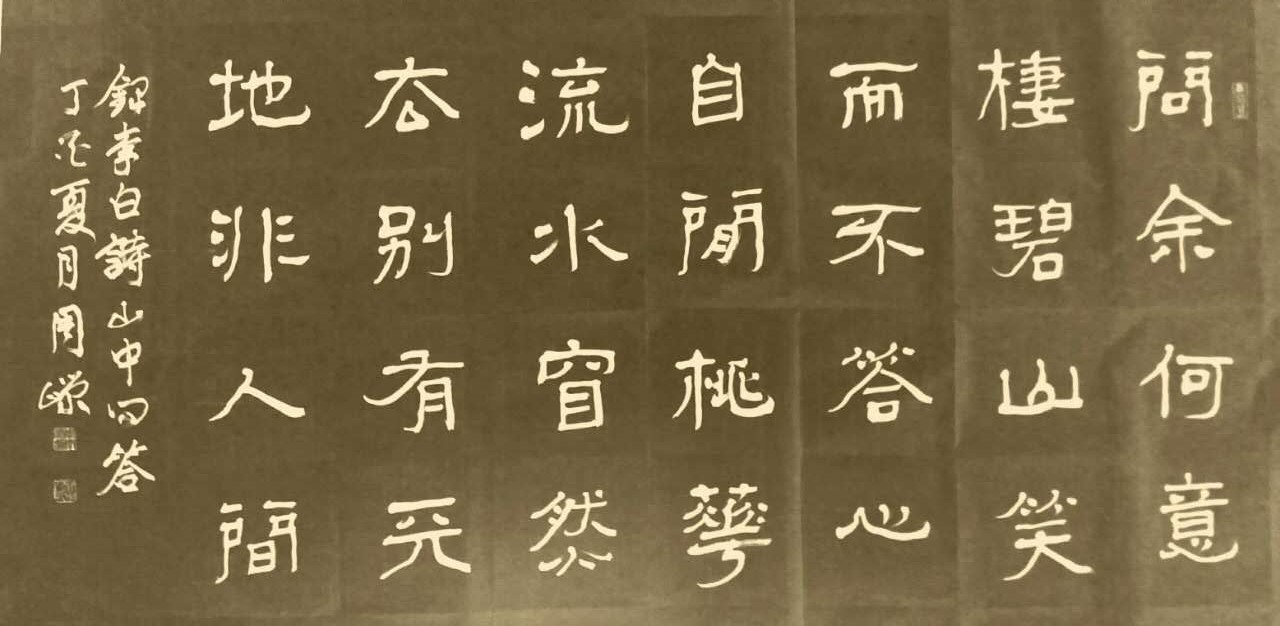 問余何意
棲碧山笑
而不答心
自閒桃華
流水窅然
去別有天
地非人間
錄李白詩山中問答
丁夏月周